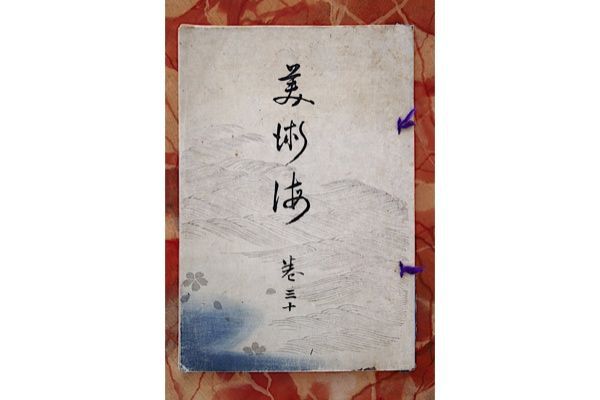 美術海
巻三十